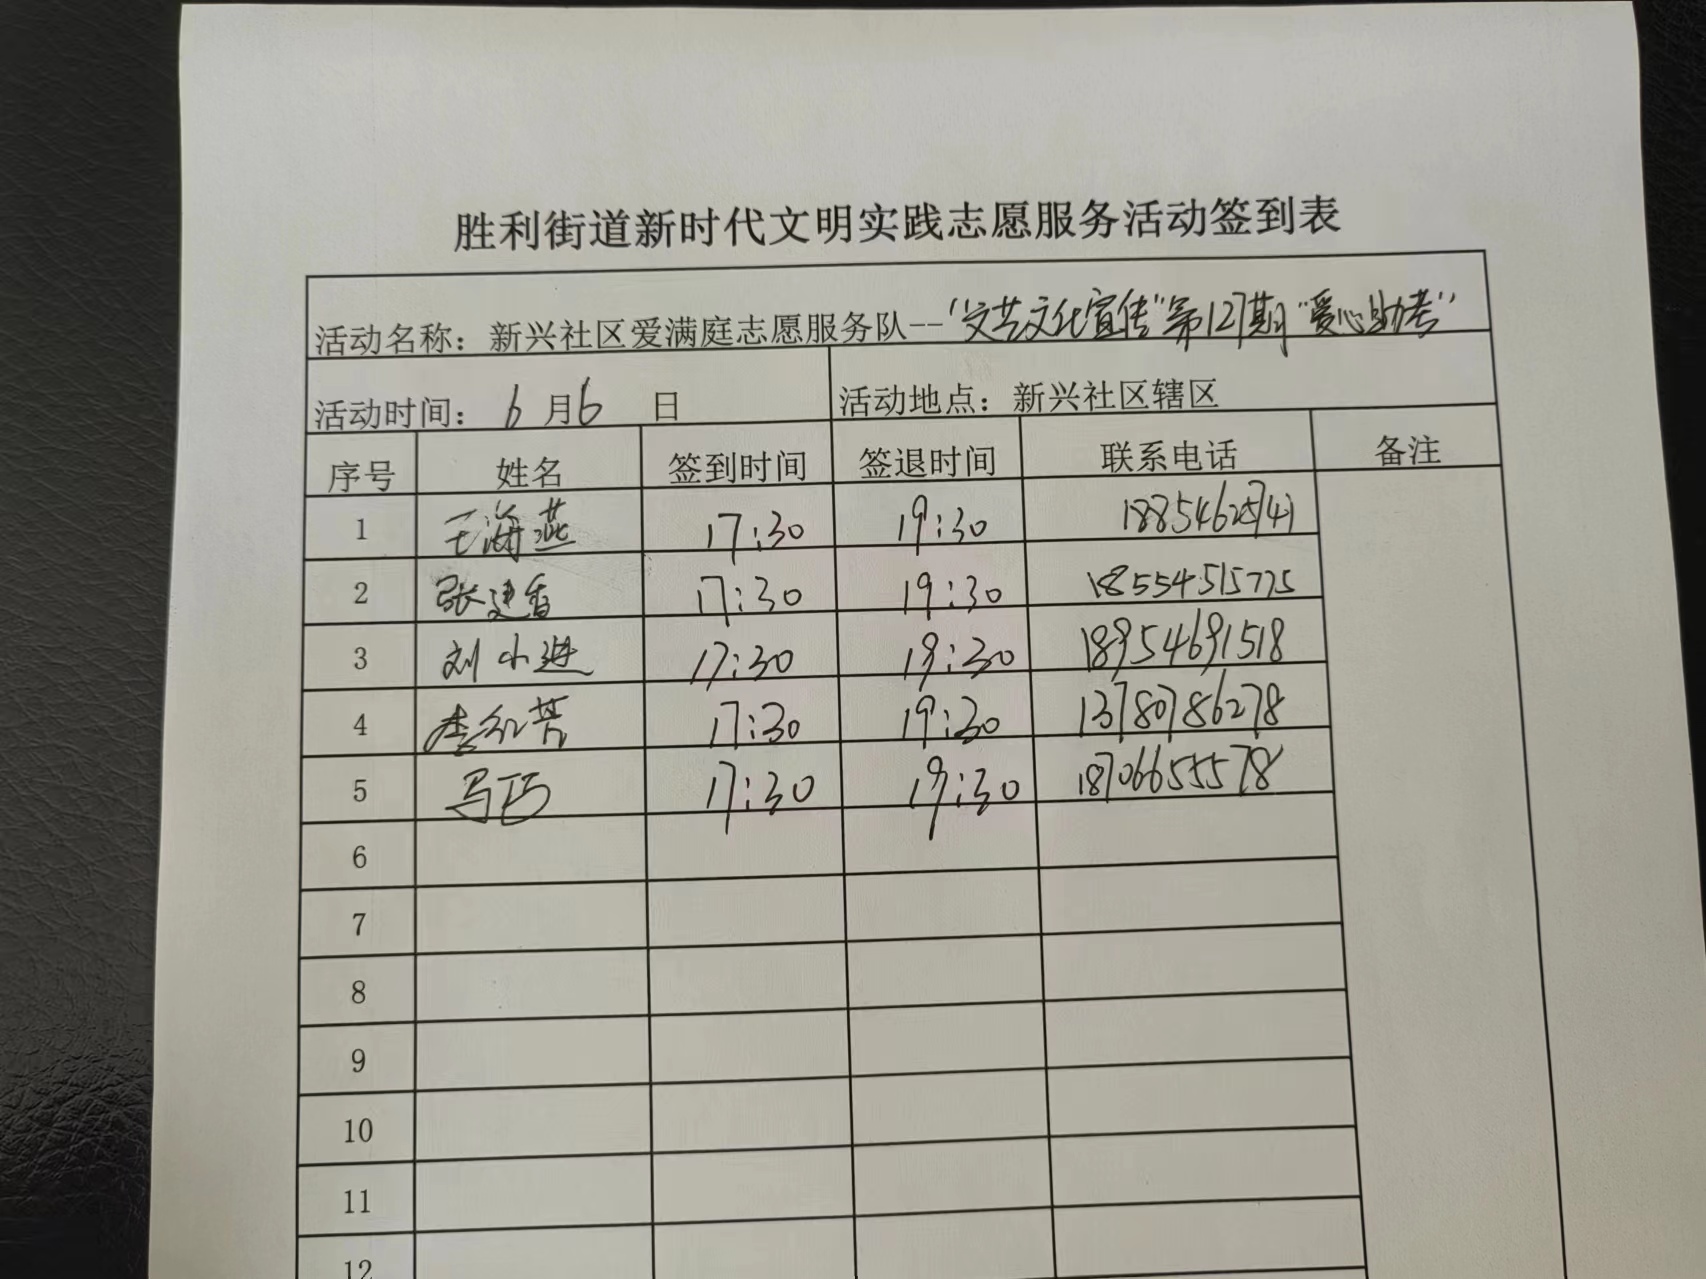 胜利街道新时代文明实践志愿服务活动签到表
活动名称：新兴社区爱满庭志愿服务队--“文艺文化宣传”第127期“爱心助考”
活动时间： 6 月 6 日 活动地点：新兴社区辖区
序号 姓名 签到时间 签退时间 联系电话 备注
1 王海燕 17:30 19:30 18854625741
2 张建香 17:30 19:30 18554515775
3 刘小进 17:30 19:30 18954691518
4 李红芳 17:30 19:30 13780786278
5 马巧 17:30 19:30 18706655578
6
7
8
9
10
11
12